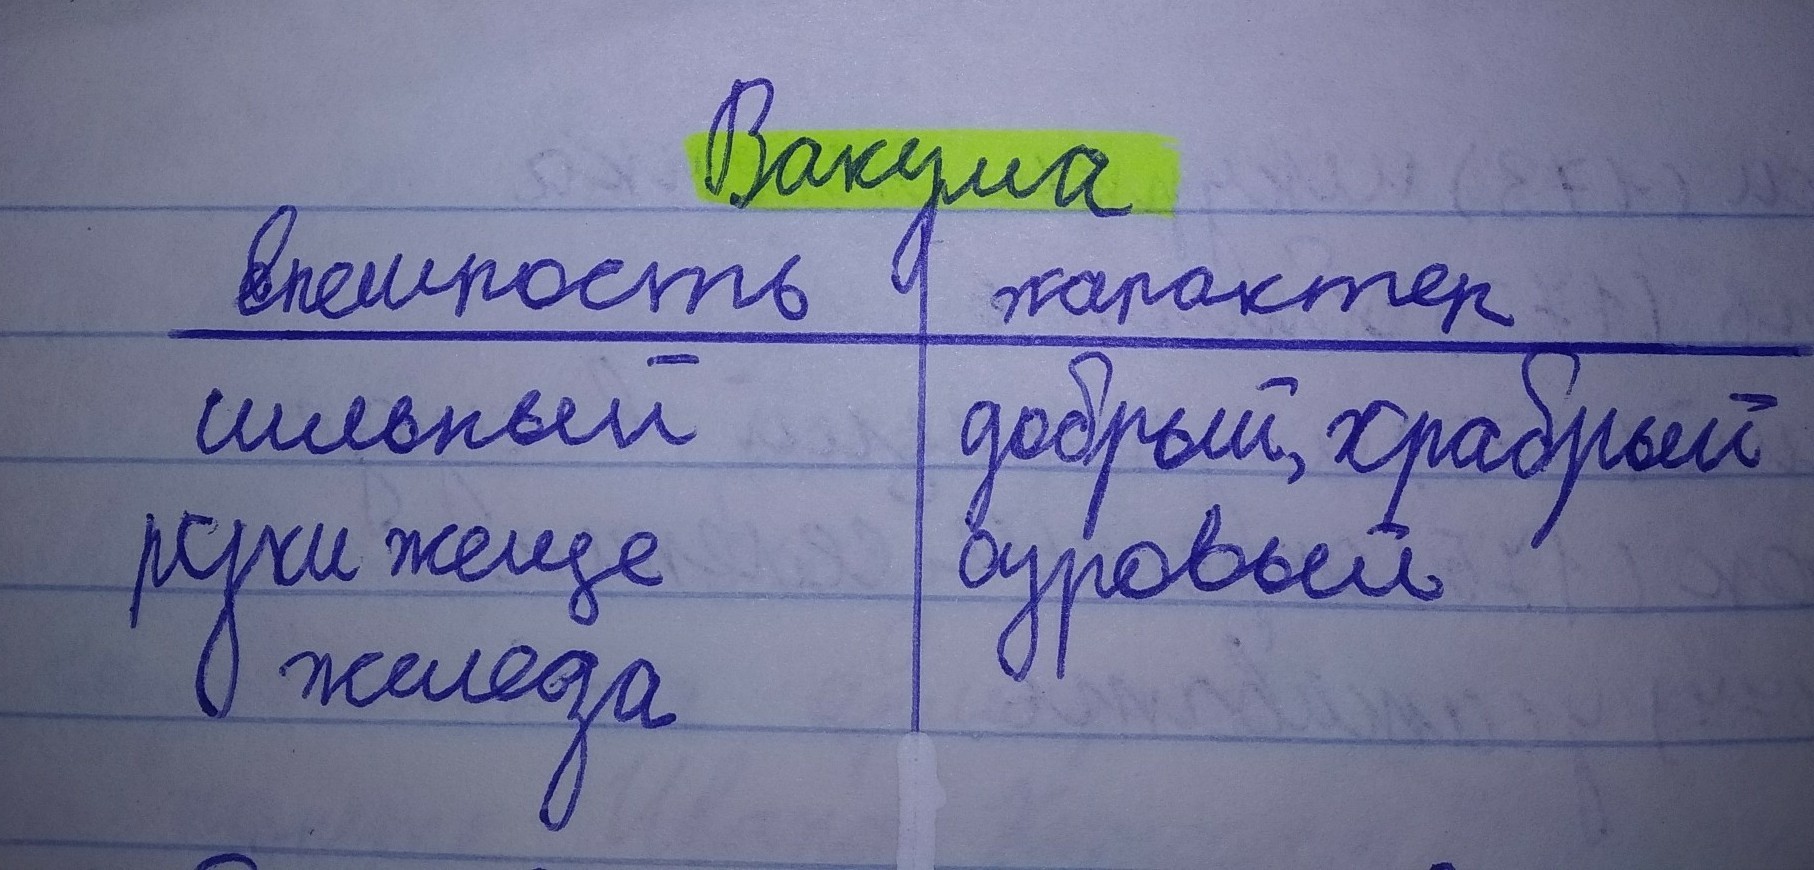 Вакула
внешность характер
сильный добрый, храбрый
руки жеще суровый
железа